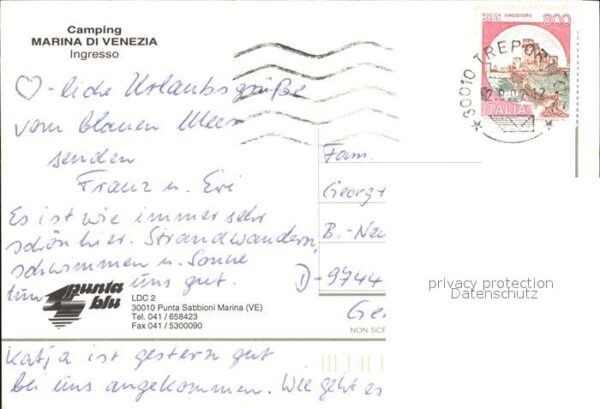 Camping
MARINA DI VENEZIA
Ingresso
♡-liche Urlaubsgrüße
vom blauen Meer
senden
Franz u. Evi
Es ist wie immer sehr
schön hier. Strandwandern,
schwimmen u. Sonne
tun uns gut.
Katja ist gestern gut
bei uns angekommen. Wie geht es
punta
blu
LDC 2
30010 Punta Sabbioni Marina (VE)
Tel. 041 / 658423
Fax 041 / 5300090
ROCCA MAGGIORE
ASSISI
800
ITALIA
30010 TREPOR
Fam.
Georg +
B.-Neu
D-9744
Ge
NON SCR
privacy protection
Datenschutz